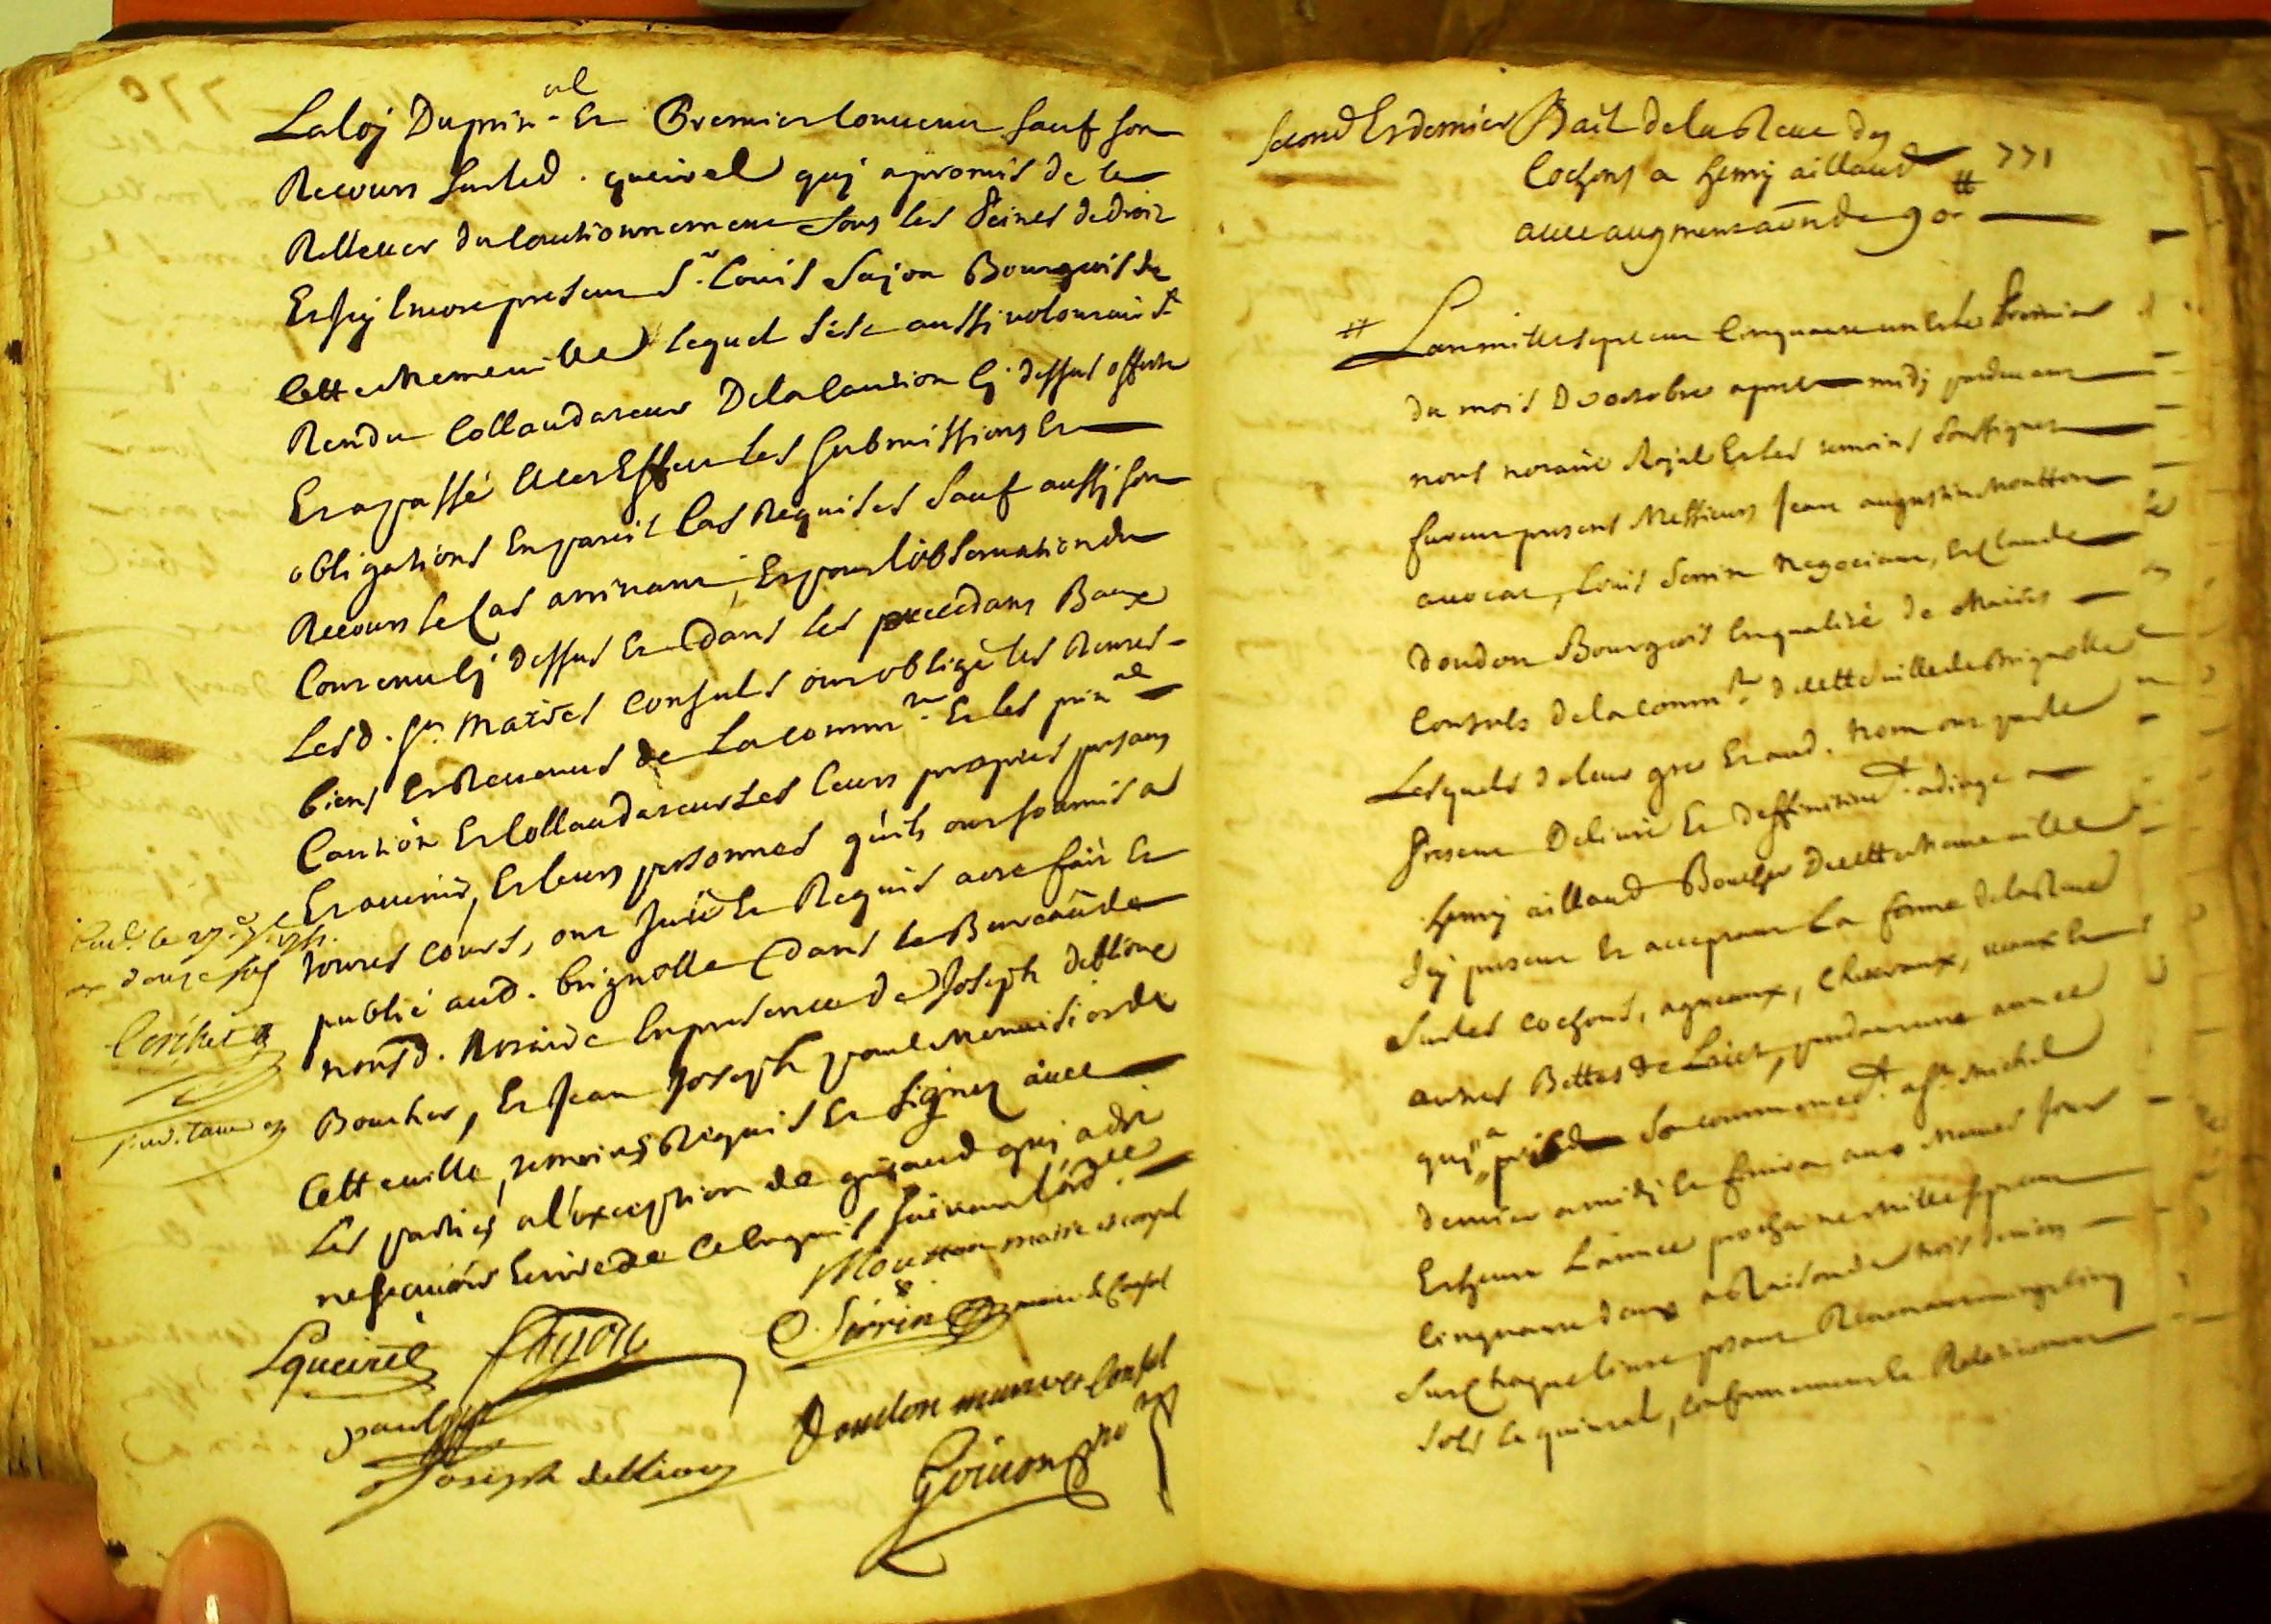 La loy du prin.al Et Premier convenu sauf son
Recours sur led. queirel quj a promis de le
Rellever du Cautionnement sous les Peines de droit
Et sy Encore present Sr. Louis Sajon Bourgeois de
Cette Meme ville lequel s'est aussi volontairemt
Rendu Collaudateur De la Caution Cj dessus offerte
Et a passé a cet Effet les submissions Et
obligations En pareil Cas Requises sauf aussj son
Recours le Cas arrivant, Et pour l'observation du
Contenu Cj dessus Et dans les precedans Baux
Lesd. srs maires consuls ont obligé les Rentes
biens Et Revenus de La commté Et les prinal
Caution Et Collaudateur les leurs propres presans
Et avenir, Et leurs personnes qu'ils ont soumis a
toutes cours, ont Juré Et Requis acte fait Et
publié aud. brignolle dans le Bureau de
nousd. Notaire En presence de Joseph deblieu
Boucher, Et Jean Joseph paul Menuisier de
Cette ville, temoins Requis Et signez avec
Les parties a l'exception de guiraud quj a dit
ne scavoir Ecrire de Ce Enquis suivant l'ord.ce
Moutton maire et consul
Lqueirel Sajon Serrin maire et Consul
paul Doudon maire et Consul
Joseph deblieux Goujon no.re
Con.lé le
douze sols
second Et dernier Bail de la Reve des
Cochons a henrj aillaud 771
avec augmentaõn de 90 #
L'an mille sept cent Cinquante un Et le Premier
du mois D'octobre apres midj pardevant
nous notaire Royal Et les temoins soussignez
furent presens Messieurs Jean augustin Moutton
avocat, Louis Serrin Negociant, Et Claude
doudon Bourgeois En qualité de Maires
Consuls de la commté de cette ville de Brignolle
Lesquels de leur gré Et aud. Nom ont par le
Present Delivré Et deffinitivemt adjugé a
henrj aillaud Boucher de cette Meme ville
Icy present Et acceptant La ferme de la Reve
sur les cochons, agneaux, chevraux, veaux Et
autres Bettes de Laict, pendant une année
quj a pris son commencemt a st Michel
dernier a midj Et finira aux Memes Jour
Et heure L'année prochaine Mille sept cent
Cinquante deux a Raison de trois deniers
sur Chaque livre pesant Revenant a vingt cinq
sols le quintal, Conformement Et Relativement